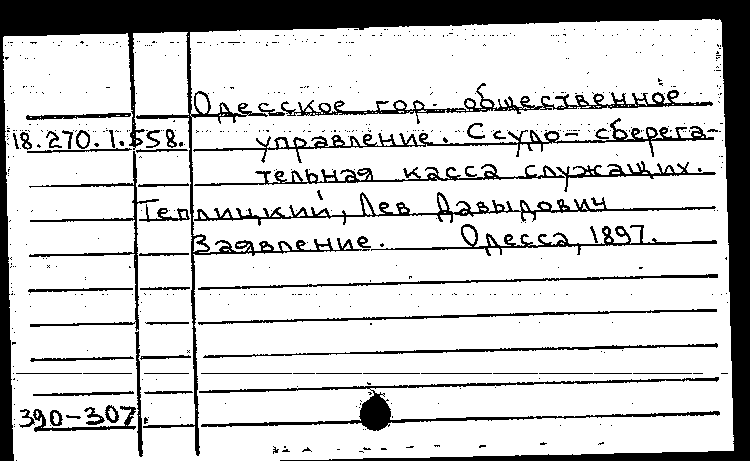 Одесское гор. общественное
18.270.1.558. управление. Ссудо-сберега-
тельная касса служащих.
Теплицкий, Лев Давыдович
Заявление. Одесса, 1897.
390-307.